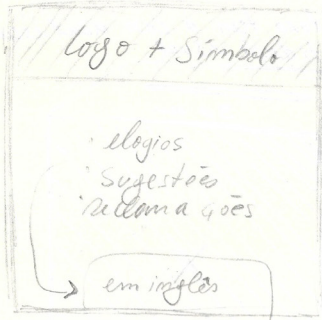 logo + símbolo
· elogios
· sugestões
· reclamações
em inglês